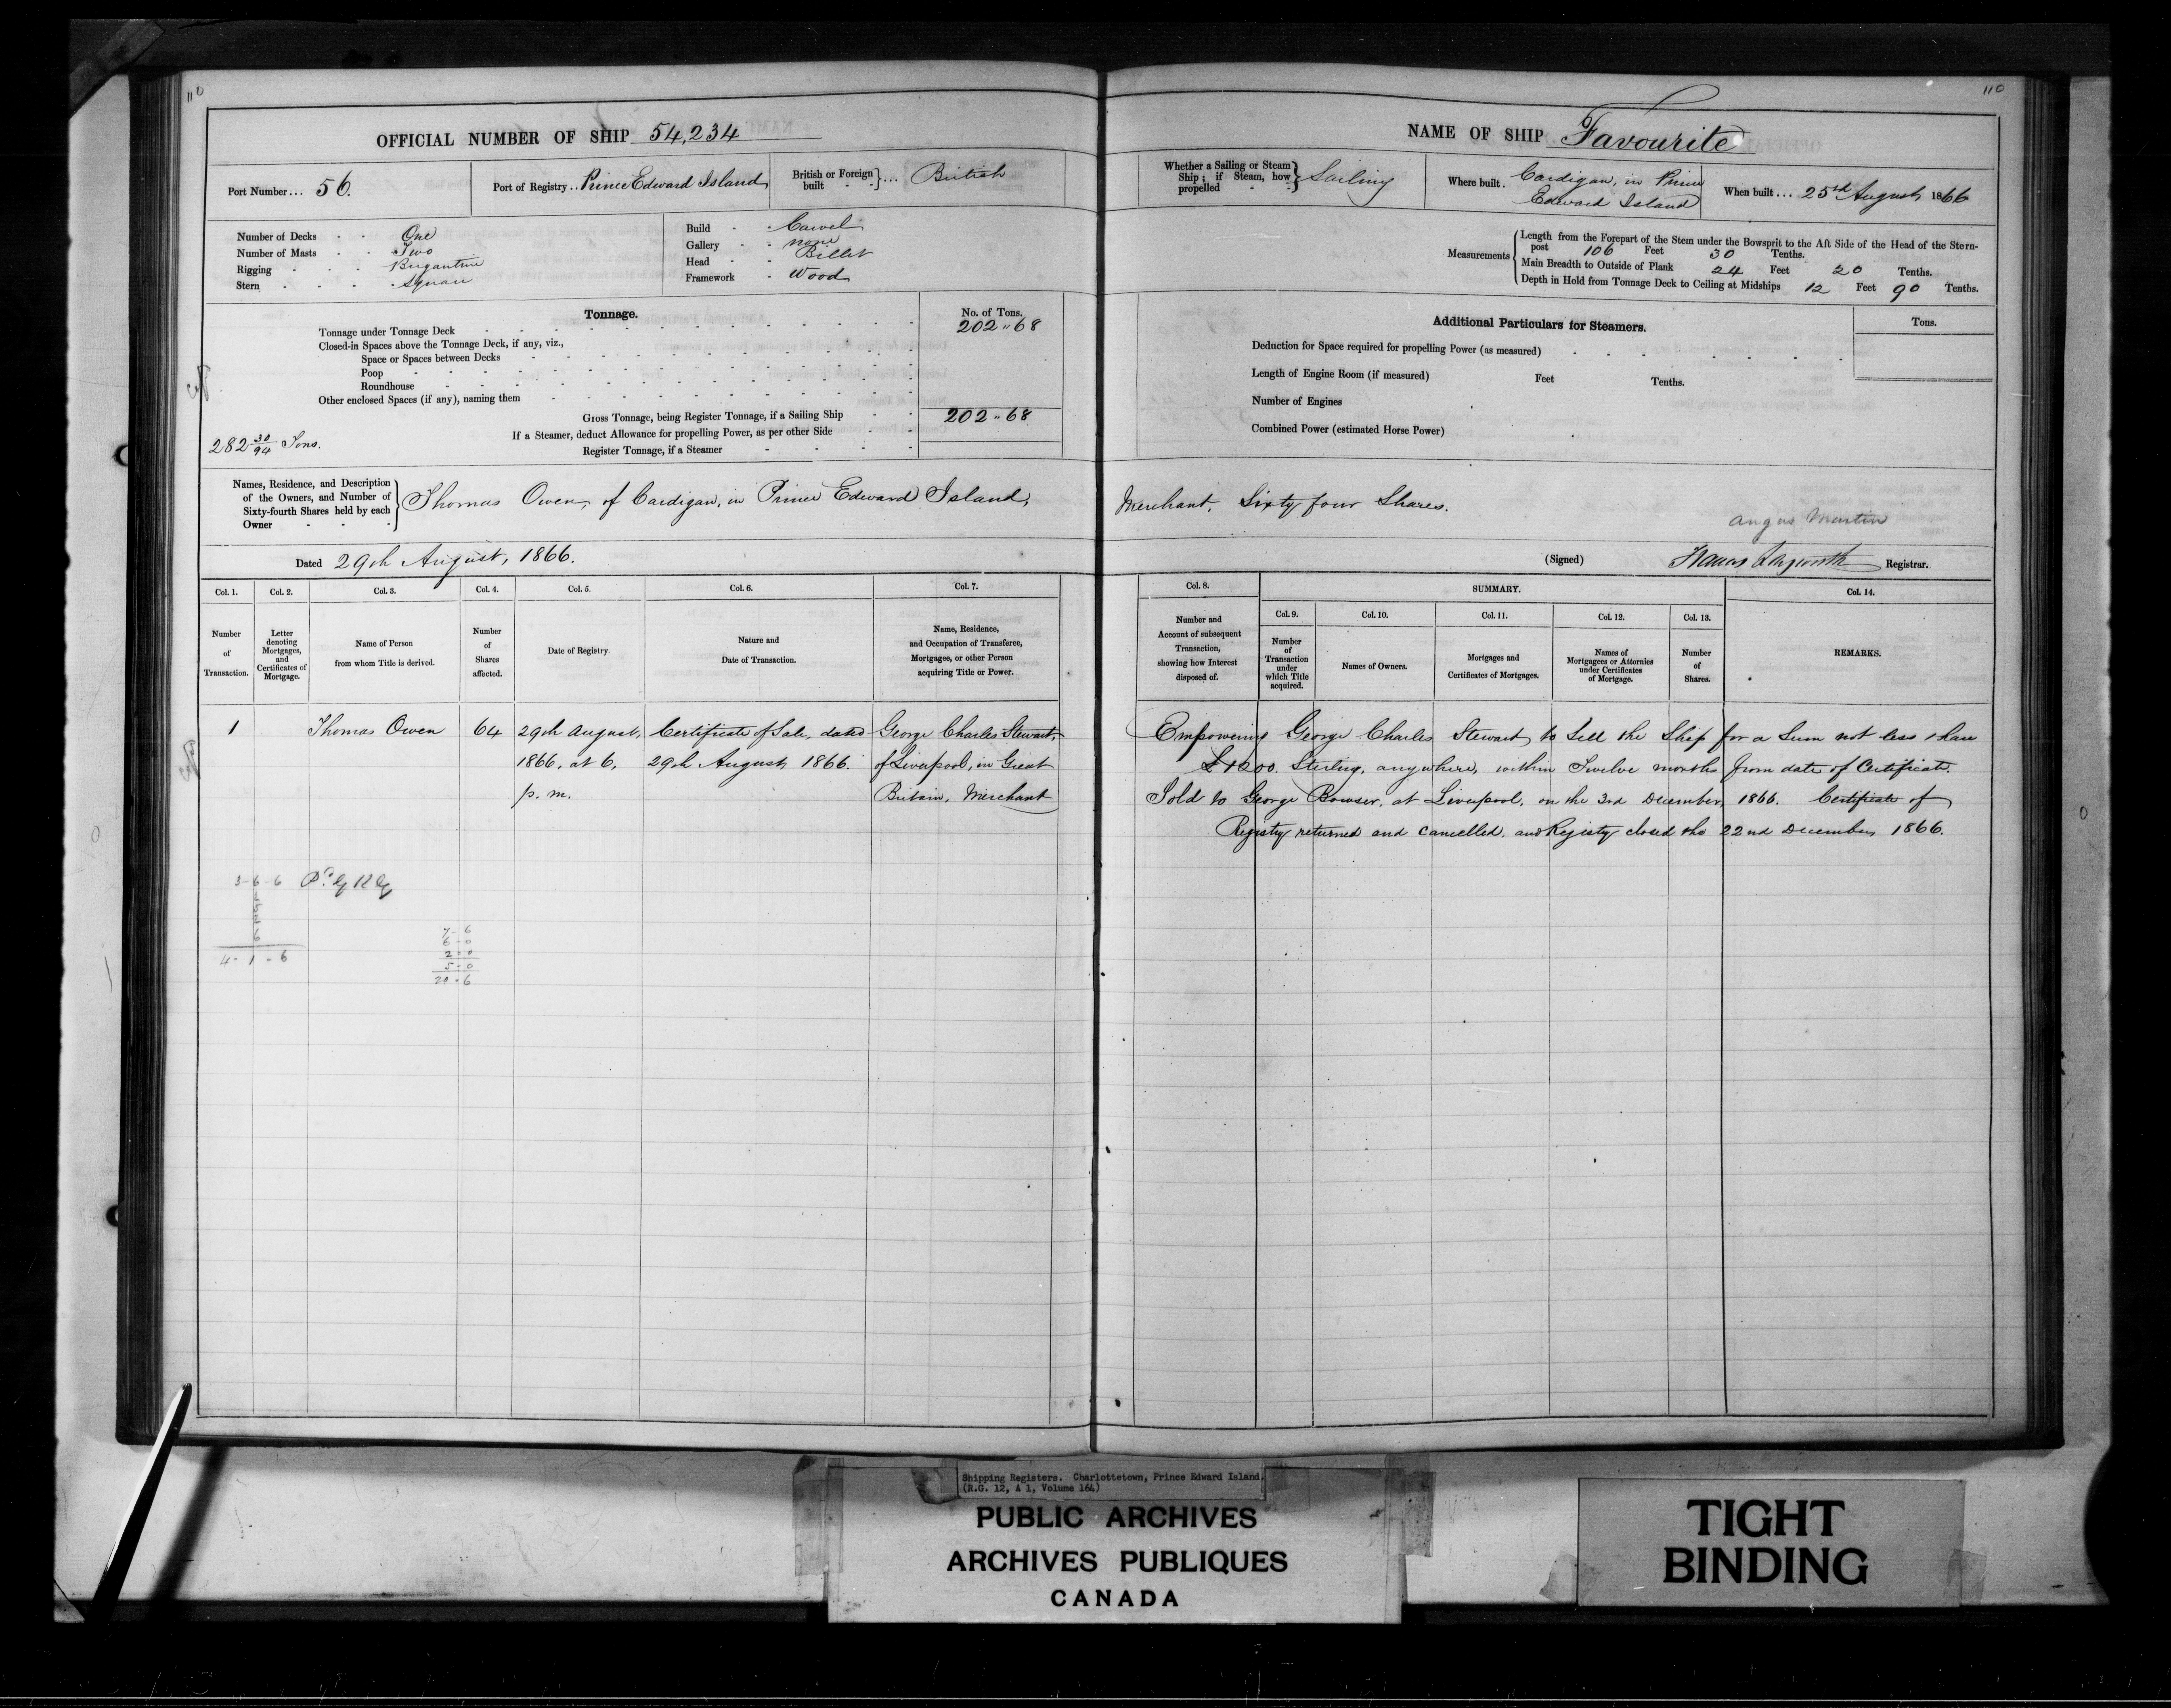 110
110
OFFICIAL NUMBER OF SHIP 54,234
Port Number... 56.
Port of Registry.. Prince Edward Island
British or Foreign built - - }... British
Number of Decks - - One
Number of Masts - - Two
Rigging - - - Brigantine
Stern - - - Square
Build - - Carvel
Gallery - - none
Head - - Billet
Framework - Wood
Tonnage.
No. of Tons.
Tonnage under Tonnage Deck 202 " 68
Closed-in Spaces above the Tonnage Deck, if any, viz.,
Space or Spaces between Decks
Poop
Roundhouse
Other enclosed Spaces (if any), naming them
Gross Tonnage, being Register Tonnage, if a Sailing Ship 202 " 68
If a Steamer, deduct Allowance for propelling Power, as per other Side
282 30/94 Tons.
Register Tonnage, if a Steamer
NAME OF SHIP Favourite
Whether a Sailing or Steam Ship; if Steam, how propelled } Sailing
Where built. Cardigan, in Prince
Edward Island
When built.... 25th August, 1866
Measurements
Length from the Forepart of the Stem under the Bowsprit to the Aft Side of the Head of the Stern-
post 106 Feet 30 Tenths.
Main Breadth to Outside of Plank 24 Feet 20 Tenths.
Depth in Hold from Tonnage Deck to Ceiling at Midships 12 Feet 90 Tenths.
Additional Particulars for Steamers.
Tons.
Deduction for Space required for propelling Power (as measured)
Length of Engine Room (if measured) Feet Tenths.
Number of Engines
Combined Power (estimated Horse Power)
Names, Residence, and Description
of the Owners, and Number of
Sixty-fourth Shares held by each
Owner
Thomas Owen, of Cardigan, in Prince Edward Island, Merchant. Sixty four Shares.
Angus Martin
Dated 29th August, 1866.
(Signed) Registrar.
Col. 1. Col. 2. Col. 3. Col. 4. Col. 5. Col. 6. Col. 7.
Number of Transaction.
Letter denoting Mortgages, and Certificates of Mortgage.
Name of Person from whom Title is derived.
Number of Shares affected.
Date of Registry.
Nature and Date of Transaction.
Name, Residence, and Occupation of Transferee, Mortgagee, or other Person acquiring Title or Power.
Col. 8. SUMMARY. Col. 14.
Col. 9. Col. 10. Col. 11. Col. 12. Col. 13.
Number and Account of subsequent Transaction, showing how Interest disposed of.
Number of Transaction under which Title acquired.
Names of Owners.
Mortgages and Certificates of Mortgages.
Names of Mortgagees or Attornies under Certificates of Mortgage.
Number of Shares.
REMARKS.
1 Thomas Owen 64 29th August, Certificate of Sale, dated George Charles Stewart,
1866, at 6, 29th August 1866. of Liverpool, in Great
p. m. Britain, Merchant
Empowering George Charles Stewart to Sell the Ship for a Sum not less than
£1200. Sterling, anywhere, within Twelve months from date of Certificate.
Sold to George Bowser, at Liverpool, on the 3rd December, 1866. Certificate of
Registry returned and cancelled, and Registry closed the 22nd December, 1866.
3-6-6
6
4-1-6
7-6
6-0
2-0
5-0
20-6
Shipping Registers. Charlottetown, Prince Edward Island.
(R.G. 12, A 1, Volume 164)
PUBLIC ARCHIVES
ARCHIVES PUBLIQUES
CANADA
TIGHT
BINDING